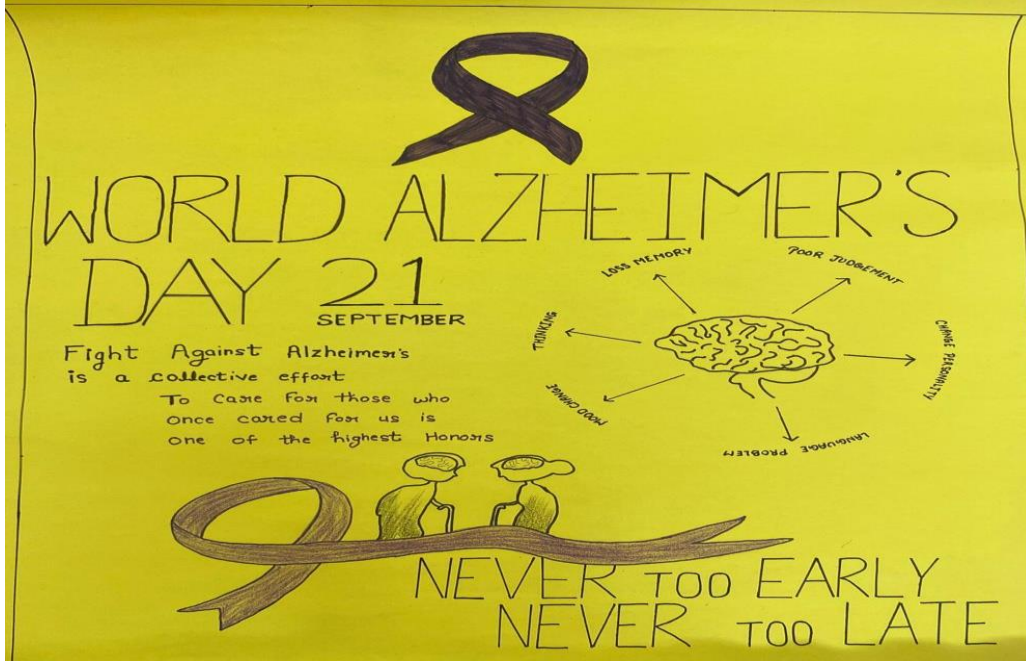 WORLD ALZHEIMER'S
DAY 21
SEPTEMBER
Fight Against Alzheimer's
is a collective effort
To Care For those who
once cared For us is
one of the highest Honors
LOSS MEMORY
POOR JUDGEMENT
THINKING
CHANGE PERSONALITY
MOOD CHANGE
LANGUAGE
PROBLEM
NEVER TOO EARLY
NEVER TOO LATE